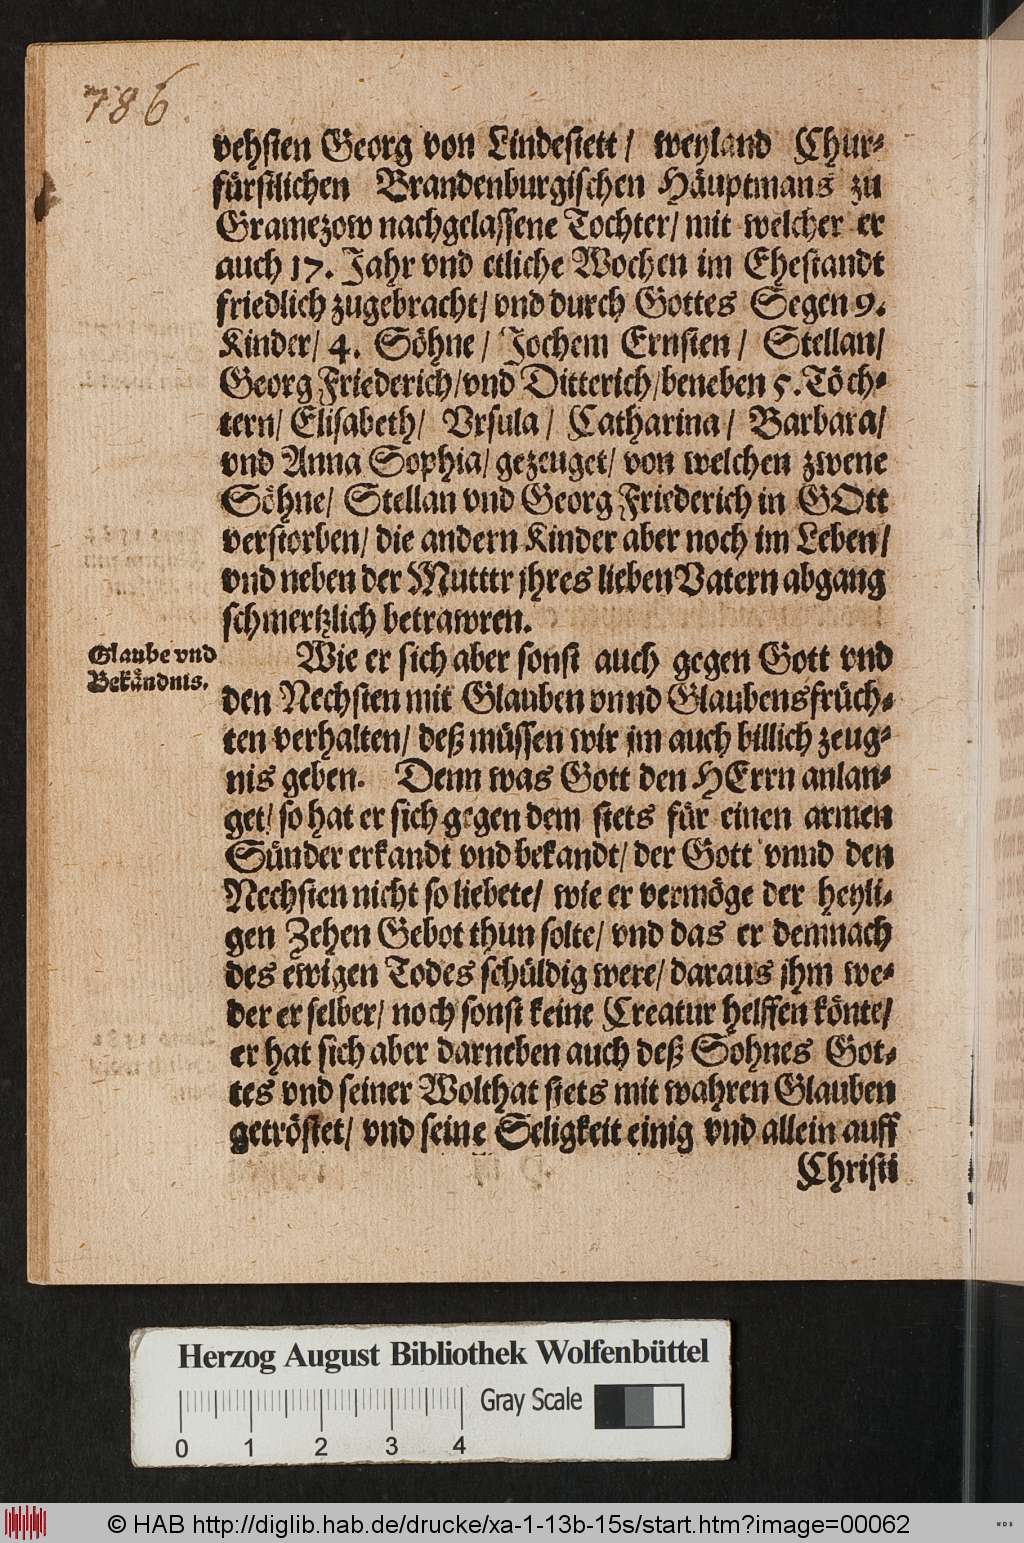 786.
vehsten Georg von Lindestett/ weyland Chur-
fürstlichen Brandenburgischen Häuptmans zu
Gramezow nachgelassene Tochter/ mit welcher er
auch 17. Jahr vnd etliche Wochen im Ehestandt
friedlich zugebracht/ vnd durch Gottes Segen 9.
Kinder/ 4. Söhne/ Jochem Ernsten/ Stellan/
Georg Friederich/ vnd Ditterich/ beneben 5. Töch-
tern/ Elisabeth/ Vrsula/ Catharina/ Barbara/
vnd Anna Sophia/ gezeuget/ von welchen zwene
Söhne/ Stellan vnd Georg Friederich in GOtt
verstorben/ die andern Kinder aber noch im Leben/
vnd neben der Mutttr jhres lieben Vatern abgang
schmertzlich betrawren.
Glaube vnd
Bekändnis.
Wie er sich aber sonst auch gegen Gott vnd
den Nechsten mit Glauben vnnd Glaubensfrüch-
ten verhalten/ deß müssen wir jm auch billich zeug-
nis geben. Denn was Gott den HErrn anlan-
get/ so hat er sich gegen dem stets für einen armen
Sünder erkandt vnd bekandt/ der Gott vnnd den
Nechsten nicht so liebete/ wie er vermöge der heyli-
gen Zehen Gebot thun solte/ vnd das er demnach
des ewigen Todes schüldig were/ daraus jhm we-
der er selber/ noch sonst keine Creatur helffen könte/
er hat sich aber darneben auch deß Sohnes Got-
tes vnd seiner Wolthat stets mit wahren Glauben
getröstet/ vnd seine Seligkeit einig vnd allein auff
Christi
Herzog August Bibliothek Wolfenbüttel
Gray Scale
0 1 2 3 4
© HAB http://diglib.hab.de/drucke/xa-1-13b-15s/start.htm?image=00062